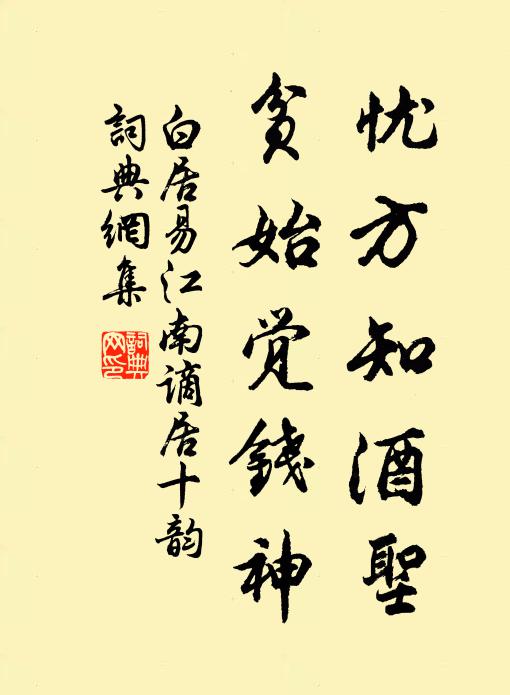 忧方知酒聖
贫始觉錢神
白居易江南谪居十韵
詞典網集
詞典网印